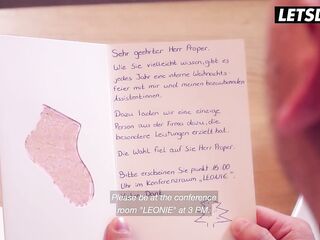 LETSD
Sehr geehrter Herr Proper.
Wie Sie vielleicht wissen, gibt es
jedes Jahr eine interne Weihnachts-
feier mit mir und meinen bezaubernden
Assistentinnen.
Dazu laden wir eine einzige
Person aus der Firma dazu, die
besondere Leistungen erzielt hat.
Die Wahl fiel auf Sie Herr Proper.
Bitte erscheinen Sie punkt 15:00
Uhr im Konferenzraum "LEONIE".
Please be at the conference
room "LEONIE" at 3 PM.